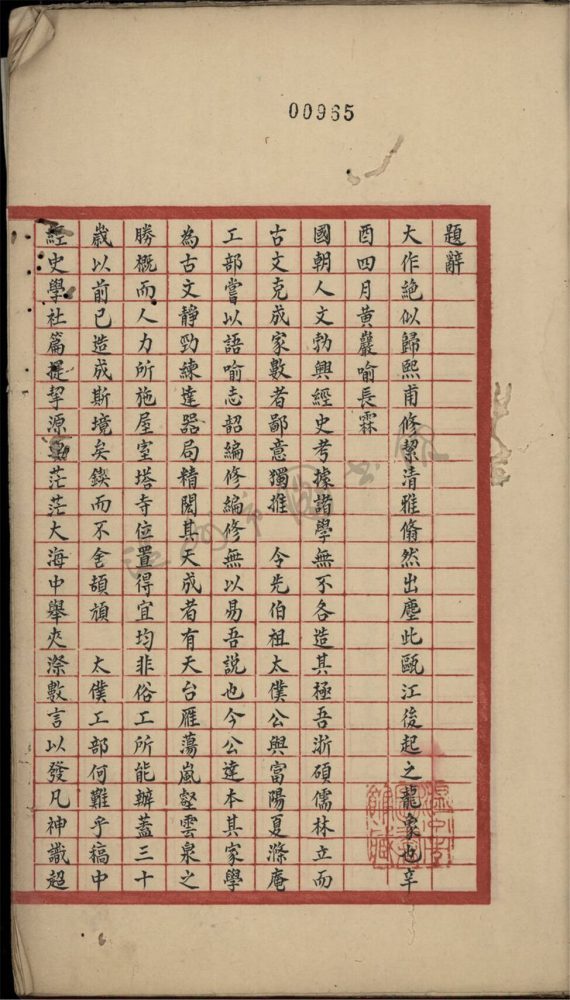 00965
題辭
大作絶似歸熙甫修潔清雅翛然出塵此甌江後起之龍象也辛
酉四月黃巖喻長霖
國朝人文勃興經史考據諸學無不各造其極吾浙碩儒林立而
古文克成家數者鄙意獨推 令先伯祖太僕公與富陽夏滌庵
工部嘗以語喻志韶編修編修無以易吾說也今公達本其家學
為古文靜勁練達器局精閎其天成者有天台雁蕩嵐壑雲泉之
勝概而人力所施屋室塔寺位置得宜均非俗工所能辦蓋三十
歲以前已造成斯境矣鍥而不舍頡頏 太僕工部何難乎稿中
經史學社篇提挈源委茫茫大海中舉夾漈數言以發凡神識超
溫州市圖書館